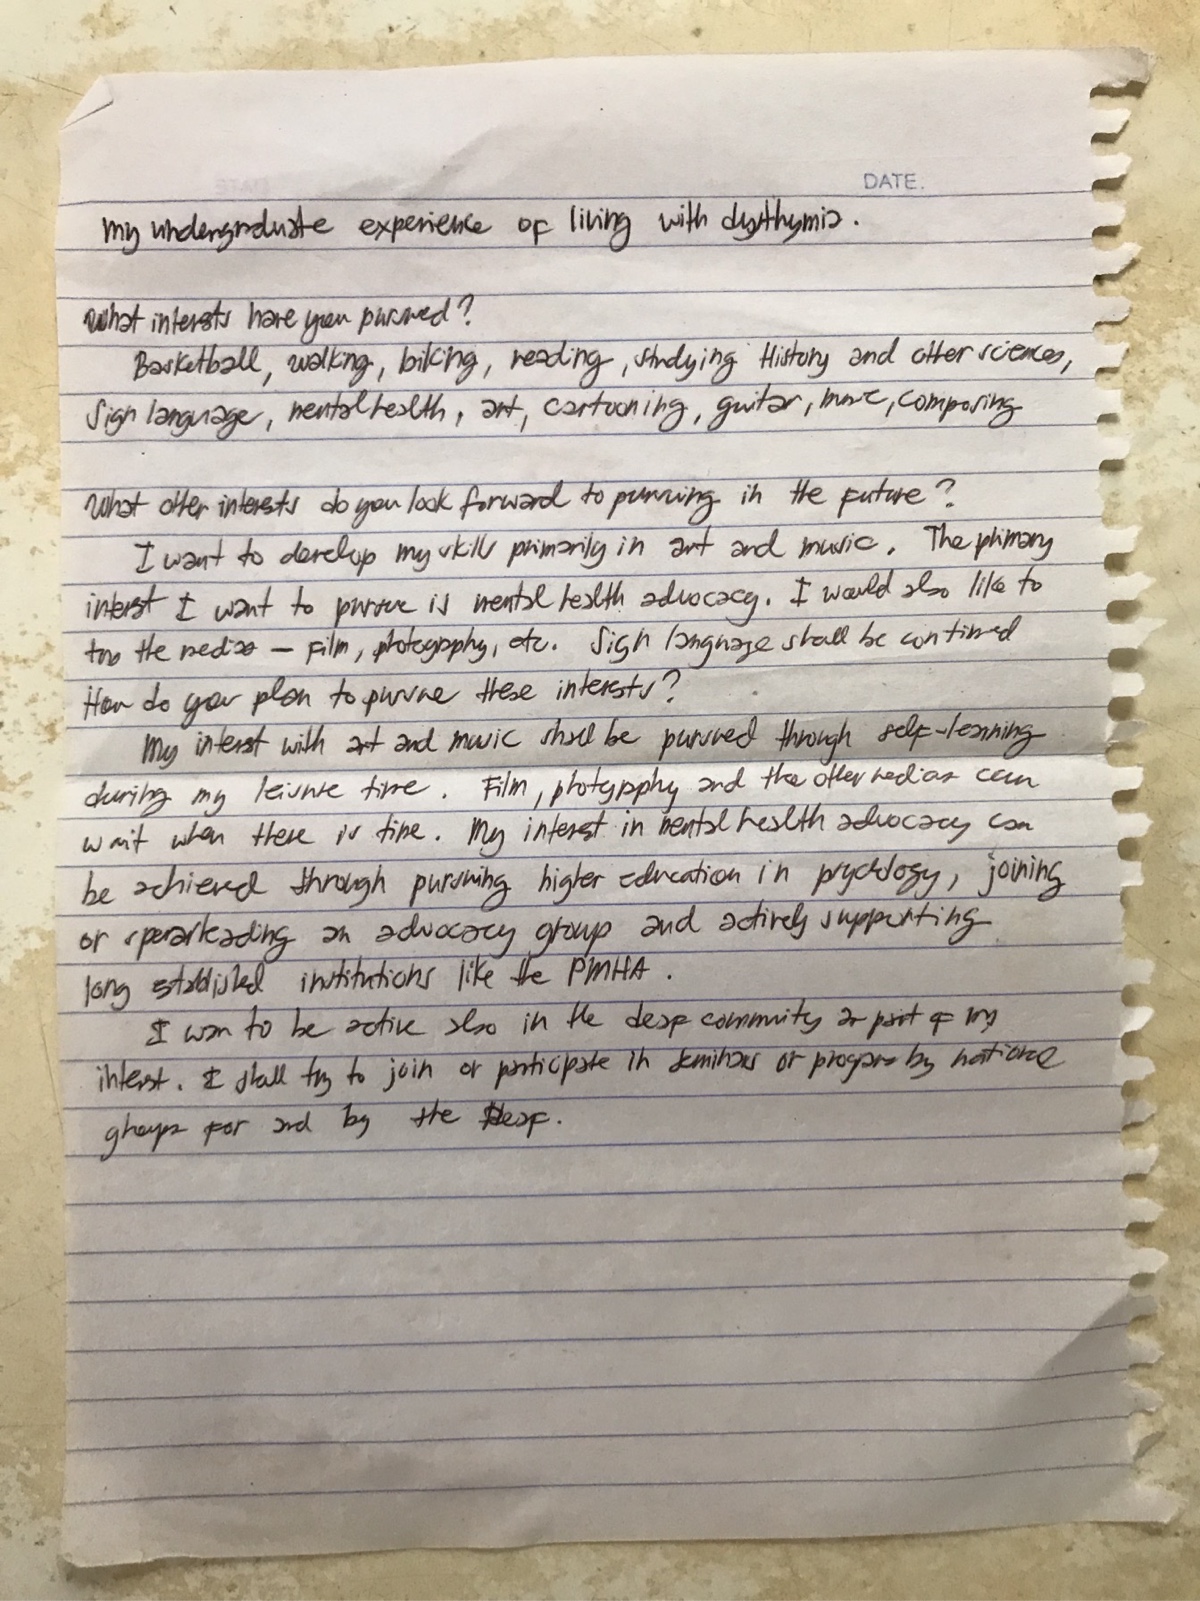 DATE.
My undergraduate experience of living with dysthymia.
What interests have you pursued?
Basketball, walking, biking, reading, studying History and other sciences,
Sign language, mental health, art, cartooning, guitar, music, composing
What other interests do you look forward to pursuing in the future?
I want to develop my skills primarily in art and music. The primary
interest I want to pursue is mental health advocacy. I would also like to
the medias — Film, photography, etc. Sign language shall be continued
How do you plan to pursue these interests?
My interest with art and music shall be pursued through self-learning
during my leisure time. Film, photography and the other medias can
wait when there is time. My interest in mental health advocacy can
be achieved through pursuing higher education in psychology, joining
or spearheading an advocacy group and actively supporting
long established institutions like the PMHA.
I wan to be active also in the deaf community as part of my
interest. I shall try to join or participate in seminars or programs by national
groups for and by the Deaf.